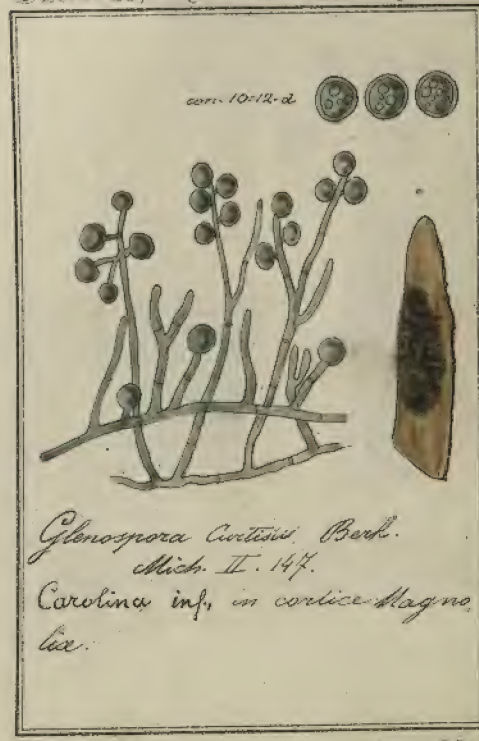 con. 10=12. d
Glenospora Curtisii Berk.
Mich. II. 147.
Carolina inf., in cortice Magno,
liæ.